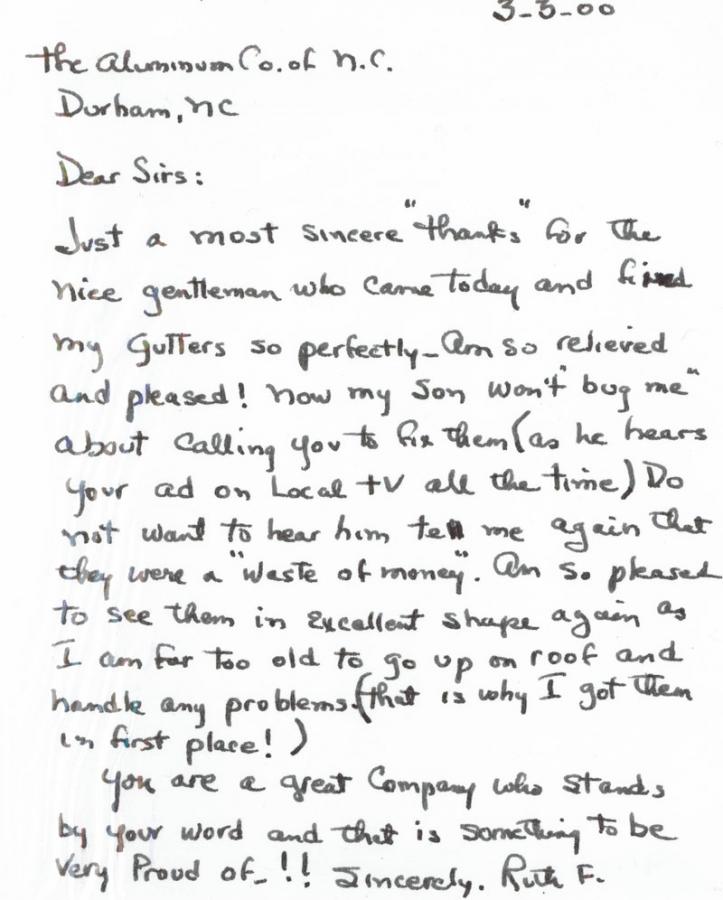 3-3-00
The Aluminum Co. of N.C.
Durham, NC
Dear Sirs:
Just a most sincere "thanks" for the
nice gentleman who came today and fixed
my Gutters so perfectly - Am so relieved
and pleased! Now my Son won't "bug me"
about calling you to fix them (as he hears
your ad on Local TV all the time) Do
not want to hear him tell me again that
they were a "waste of money". Am so pleased
to see them in Excellent shape again as
I am far too old to go up on roof and
handle any problems (that is why I got them
in first place!)
You are a great Company who stands
by your word and that is something to be
Very Proud of - !! Sincerely. Ruth F.